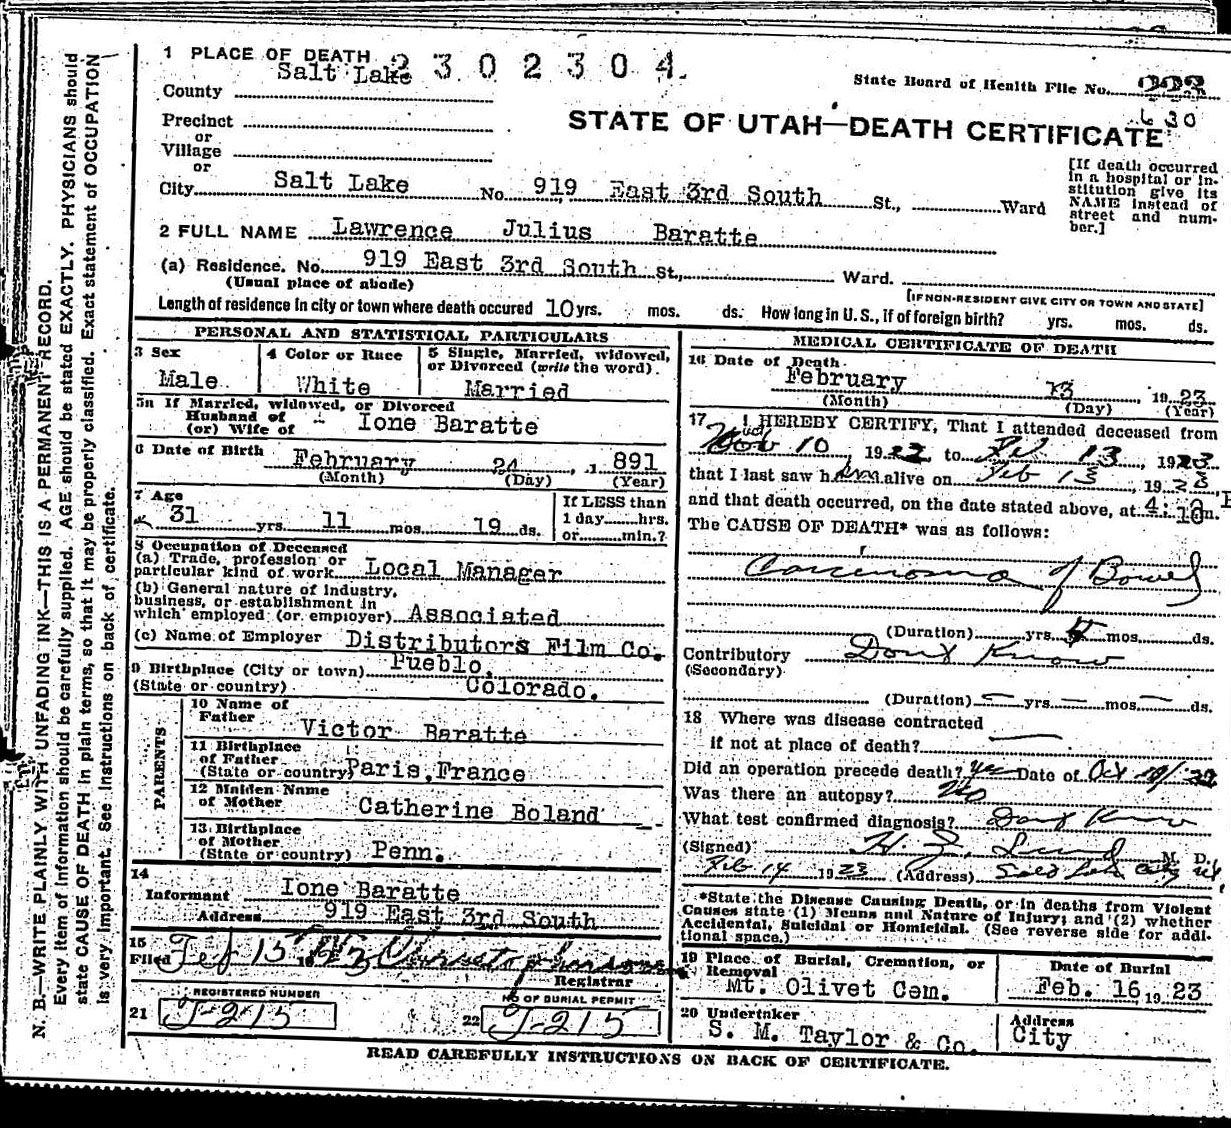 1 PLACE OF DEATH 2302304.
State Board of Health File No.
Salt Lake
County
630
Precinct
STATE OF UTAH—DEATH CERTIFICATE
or
Village
or
City Salt Lake No. 919 East 3rd South St., Ward
[If death occurred in a hospital or in-
stitution give its
NAME instead of
street and num-
ber.]
2 FULL NAME Lawrence Julius Baratte
(a) Residence. No. 919 East 3rd South St., Ward.
(Usual place of abode)
[IF NON-RESIDENT GIVE CITY OR TOWN AND STATE]
Length of residence in city or town where death occured 10 yrs. mos. ds. How long in U. S., if of foreign birth? yrs. mos. ds.
PERSONAL AND STATISTICAL PARTICULARS
3 Sex
Male
4 Color or Race
White
5 Single, Married, widowed,
or Divorced (write the word).
Married
5a If Married, widowed, or Divorced
Husband of
(or) Wife of " Ione Baratte
6 Date of Birth February 24, 1891
(Month) (Day) (Year)
7 Age
31 yrs. 11 mos. 19 ds.
If LESS than
1 day hrs.
or min.?
8 Occupation of Deceased
(a) Trade, profession or
particular kind of work Local Manager
(b) General nature of industry,
business, or establishment in
which employed (or employer) Associated
(c) Name of Employer Distributors Film Co.
9 Birthplace (City or town) Pueblo,
(State or country) Colorado.
PARENTS
10 Name of
Father Victor Baratte
11 Birthplace
of Father
(State or country) Paris, France
12 Maiden Name
of Mother Catherine Boland
13 Birthplace
of Mother
(State or country) Penn.
14
Informant Ione Baratte
Address 919 East 3rd South
15
Filed Feb 15 1923
Registrar
REGISTERED NUMBER
21 J-215
No OF BURIAL PERMIT
22 J-215
MEDICAL CERTIFICATE OF DEATH
16 Date of Death
February 13 1923
(Month) (Day) (Year)
17 I HEREBY CERTIFY, That I attended deceased from
Nov 10, 1922 to Feb 13, 1923
that I last saw him alive on Feb 13, 1923,
and that death occurred, on the date stated above, at 4:10 P m.
The CAUSE OF DEATH* was as follows:
Carcinoma of Bowel
(Duration) yrs. mos. ds.
Contributory Dont Know
(Secondary)
(Duration) — yrs. — mos. — ds.
18 Where was disease contracted
if not at place of death?
Did an operation precede death? yes Date of Oct 22
Was there an autopsy? No
What test confirmed diagnosis? Dont Know
(Signed) H. Z. Lund M. D.
Feb 14 1923 (Address) Salt Lake City Ut
*State the Disease Causing Death, or in deaths from Violent
Causes state (1) Means and Nature of Injury; and (2) whether
Accidental, Suicidal or Homicidal. (See reverse side for addi-
tional space.)
19 Place of Burial, Cremation, or
Removal
Mt. Olivet Cem.
Date of Burial
Feb. 16 1923
20 Undertaker
S. M. Taylor & Co.
Address
City
READ CAREFULLY INSTRUCTIONS ON BACK OF CERTIFICATE.
N. B.—WRITE PLAINLY WITH UNFADING INK—THIS IS A PERMANENT RECORD.
Every item of information should be carefully supplied. AGE should be stated EXACTLY. PHYSICIANS should
state CAUSE OF DEATH in plain terms, so that it may be properly classified. Exact statement of OCCUPATION
is very important. See instructions on back of certificate.